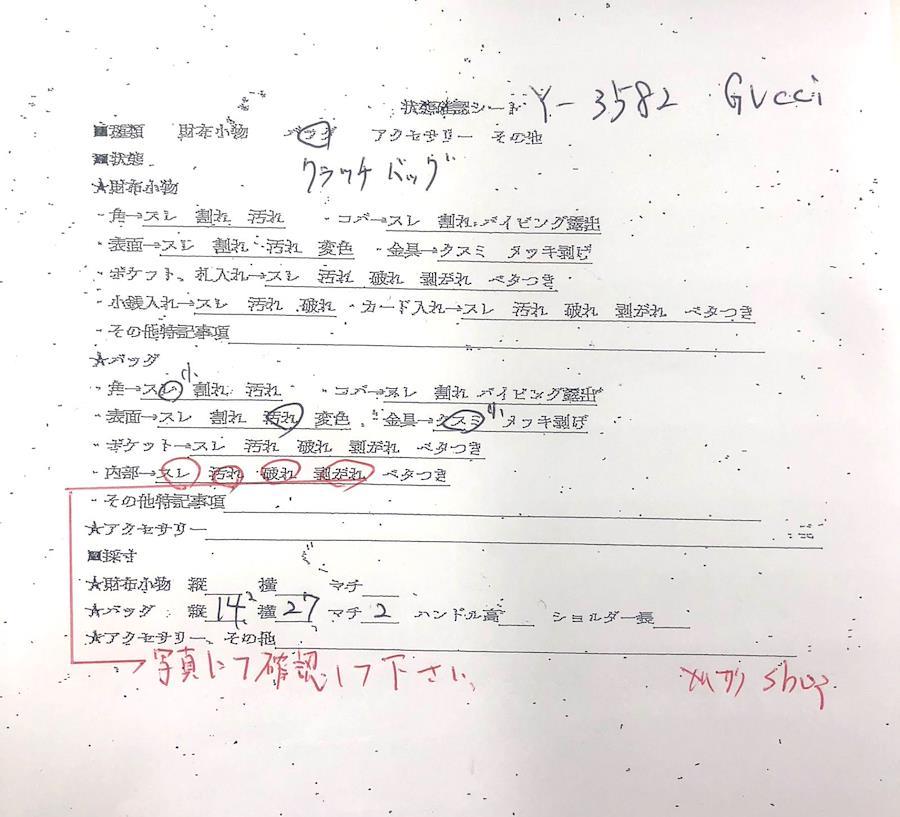 状態確認シート Y-3582 Gucci
■種類 財布小物 バッグ アクセサリー その他
■状態 クラッチバッグ
★財布小物
・角→スレ 割れ 汚れ ・コバ→スレ 割れ パイピング露出
・表面→スレ 割れ 汚れ 変色 ・金具→クスミ メッキ剥げ
・ポケット、札入れ→スレ 汚れ 破れ 剥がれ ベタつき
・小銭入れ→スレ 汚れ 破れ ・カード入れ→スレ 汚れ 破れ 剥がれ ベタつき
・その他特記事項
★バッグ
・角→スレ小 割れ 汚れ ・コバ→スレ 割れ パイピング露出
・表面→スレ 割れ 汚れ 変色 ・金具→クスミ小 メッキ剥げ
・ポケット→スレ 汚れ 破れ 剥がれ ベタつき
・内部→スレ 汚れ 破れ 剥がれ ベタつき
・その他特記事項
★アクセサリー
■採寸
★財布小物 縦 横 マチ
★バッグ 縦 14.2 横 27 マチ 2 ハンドル高 ショルダー長
★アクセサリー、その他
写真にて確認して下さい。
shop